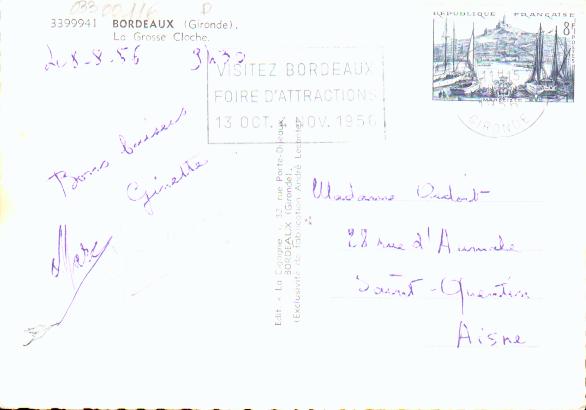 033 00 116 D
3399941 BORDEAUX (Gironde).
La Grosse Cloche.
RÉPUBLIQUE FRANÇAISE
8F
MARSEILLE
GIRONDE
VISITEZ BORDEAUX
FOIRE D'ATTRACTIONS
13 OCT. NOV. 1956
28-8-56 3h30
Bons baisers
Ginette
Marc
Edit. « La Cigogne », 32, rue Porte-Dijeaux,
BORDEAUX (Gironde).
(Exclusivité de fabrication André Leconte)
Madame
28 rue d'Aumale
Saint-Quentin
Aisne